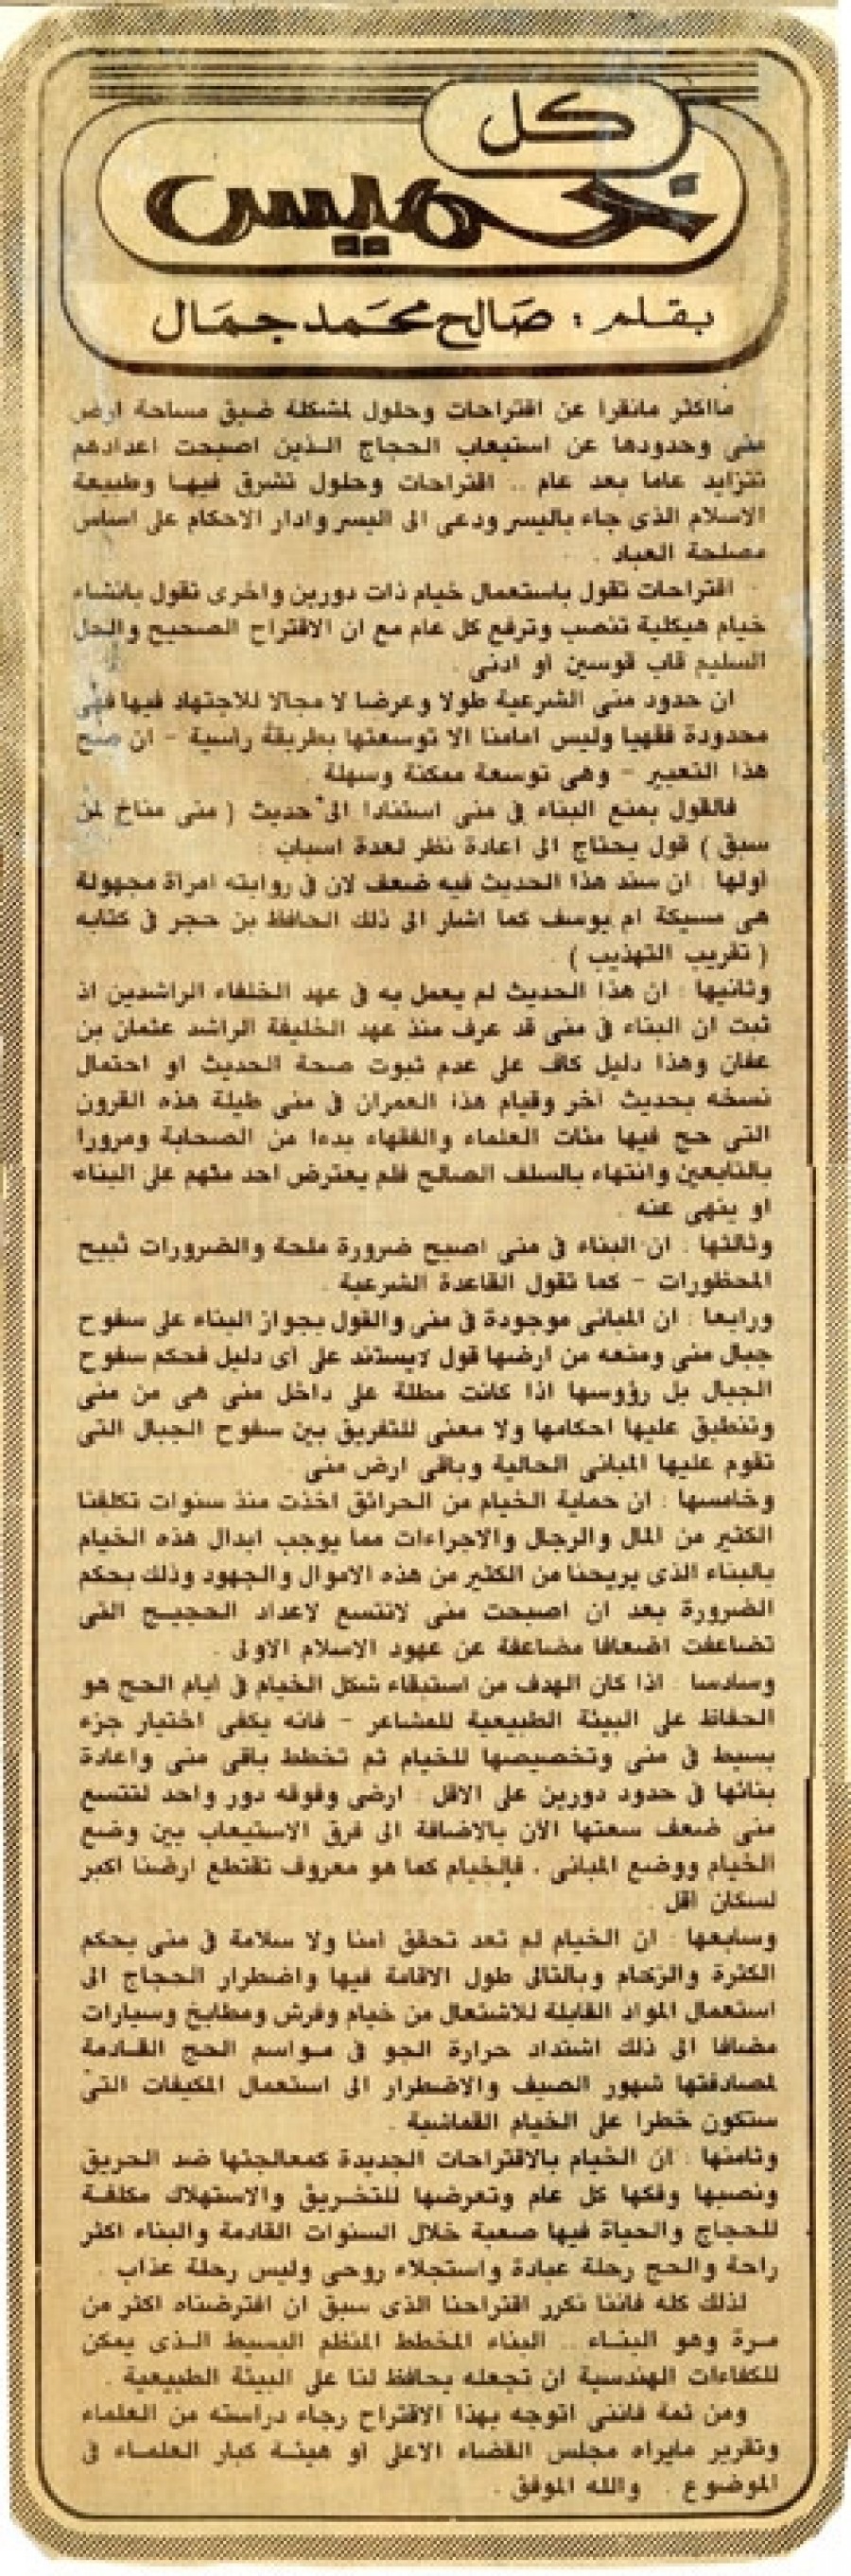 كل
خميس
بقلم : صالح محمد جمال
مااكثر مانقرا عن اقتراحات وحلول لمشكلة ضيق مساحة ارض
منى وحدودها عن استيعاب الحجاج الذين اصبحت اعدادهم
تتزايد عاما بعد عام .. اقتراحات وحلول تشرق فيها وطبيعة
الاسلام الذى جاء باليسر ودعى الى اليسر وادار الاحكام على اساس
مصلحة العباد .
اقتراحات تقول باستعمال خيام ذات دورين واخرى تقول بانشاء
خيام هيكلية تنصب وترفع كل عام مع ان الاقتراح الصحيح والحل
السليم قاب قوسين او ادنى .
ان حدود منى الشرعية طولا وعرضا لا مجالا للاجتهاد فيها فهى
محدودة فقهيا وليس امامنا الا توسعتها بطريقة راسية - ان صح
هذا التعبير - وهى توسعة ممكنة وسهلة .
فالقول بمنع البناء فى منى استنادا الى حديث ( منى مناخ لمن
سبق ) قول يحتاج الى اعادة نظر لعدة اسباب :
اولها : ان سند هذا الحديث فيه ضعف لان فى روايته امراة مجهولة
هى مسيكة ام يوسف كما اشار الى ذلك الحافظ بن حجر فى كتابه
( تقريب التهذيب ) .
وثانيها : ان هذا الحديث لم يعمل به فى عهد الخلفاء الراشدين اذ
ثبت ان البناء فى منى قد عرف منذ عهد الخليفة الراشد عثمان بن
عفان وهذا دليل كاف على عدم ثبوت صحة الحديث او احتمال
نسخه بحديث آخر وقيام هذا العمران فى منى طيلة هذه القرون
التى حج فيها مئات العلماء والفقهاء بدءا من الصحابة ومرورا
بالتابعين وانتهاء بالسلف الصالح فلم يعترض احد منهم على البناء
او ينهى عنه .
وثالثها : ان البناء فى منى اصبح ضرورة ملحة والضرورات تبيح
المحظورات - كما تقول القاعدة الشرعية .
ورابعا : ان المبانى موجودة فى منى والقول بجواز البناء على سفوح
جبال منى ومنعه من ارضها قول لايستند على اى دليل فحكم سفوح
الجبال بل رؤوسها اذا كانت مطلة على داخل منى هى من منى
وتنطبق عليها احكامها ولا معنى للتفريق بين سفوح الجبال التى
تقوم عليها المبانى الحالية وباقى ارض منى .
وخامسها : ان حماية الخيام من الحرائق اخذت منذ سنوات تكلفنا
الكثير من المال والرجال والاجراءات مما يوجب ابدال هذه الخيام
بالبناء الذى يريحنا من الكثير من هذه الاموال والجهود وذلك بحكم
الضرورة بعد ان اصبحت منى لاتتسع لاعداد الحجيج التى
تضاعفت اضعافا مضاعفة عن عهود الاسلام الاولى .
وسادسا : اذا كان الهدف من استبقاء شكل الخيام فى ايام الحج هو
الحفاظ على البيئة الطبيعية للمشاعر - فانه يكفى اختيار جزء
بسيط فى منى وتخصيصها للخيام ثم تخطط باقى منى واعادة
بنائها فى حدود دورين على الاقل : ارضى وفوقه دور واحد لتتسع
منى ضعف سعتها الآن بالاضافة الى فرق الاستيعاب بين وضع
الخيام ووضع المبانى . فالخيام كما هو معروف تقتطع ارضا اكبر
لسكان اقل .
وسابعها : ان الخيام لم تعد تحقق امنا ولا سلامة فى منى بحكم
الكثرة والزحام وبالتالى طول الاقامة فيها واضطرار الحجاج الى
استعمال المواد القابلة للاشتعال من خيام وفرش ومطابخ وسيارات
مضافا الى ذلك اشتداد حرارة الجو فى مواسم الحج القادمة
لمصادفتها شهور الصيف والاضطرار الى استعمال المكيفات التى
ستكون خطرا على الخيام القماشية .
وثامنها : ان الخيام بالاقتراحات الجديدة كمعالجتها ضد الحريق
ونصبها وفكها كل عام وتعرضها للتخريق والاستهلاك مكلفة
للحجاج والحياة فيها صعبة خلال السنوات القادمة والبناء اكثر
راحة والحج رحلة عبادة واستجلاء روحى وليس رحلة عذاب .
لذلك كله فاننا نكرر اقتراحنا الذى سبق ان افترضناه اكثر من
مرة وهو البناء .. البناء المخطط المنظم البسيط الذى يمكن
للكفاءات الهندسية ان تجعله يحافظ لنا على البيئة الطبيعية .
ومن ثمة فاننى اتوجه بهذا الاقتراح رجاء دراسته من العلماء
وتقرير مايراه مجلس القضاء الاعلى او هيئة كبار العلماء فى
الموضوع . والله الموفق .